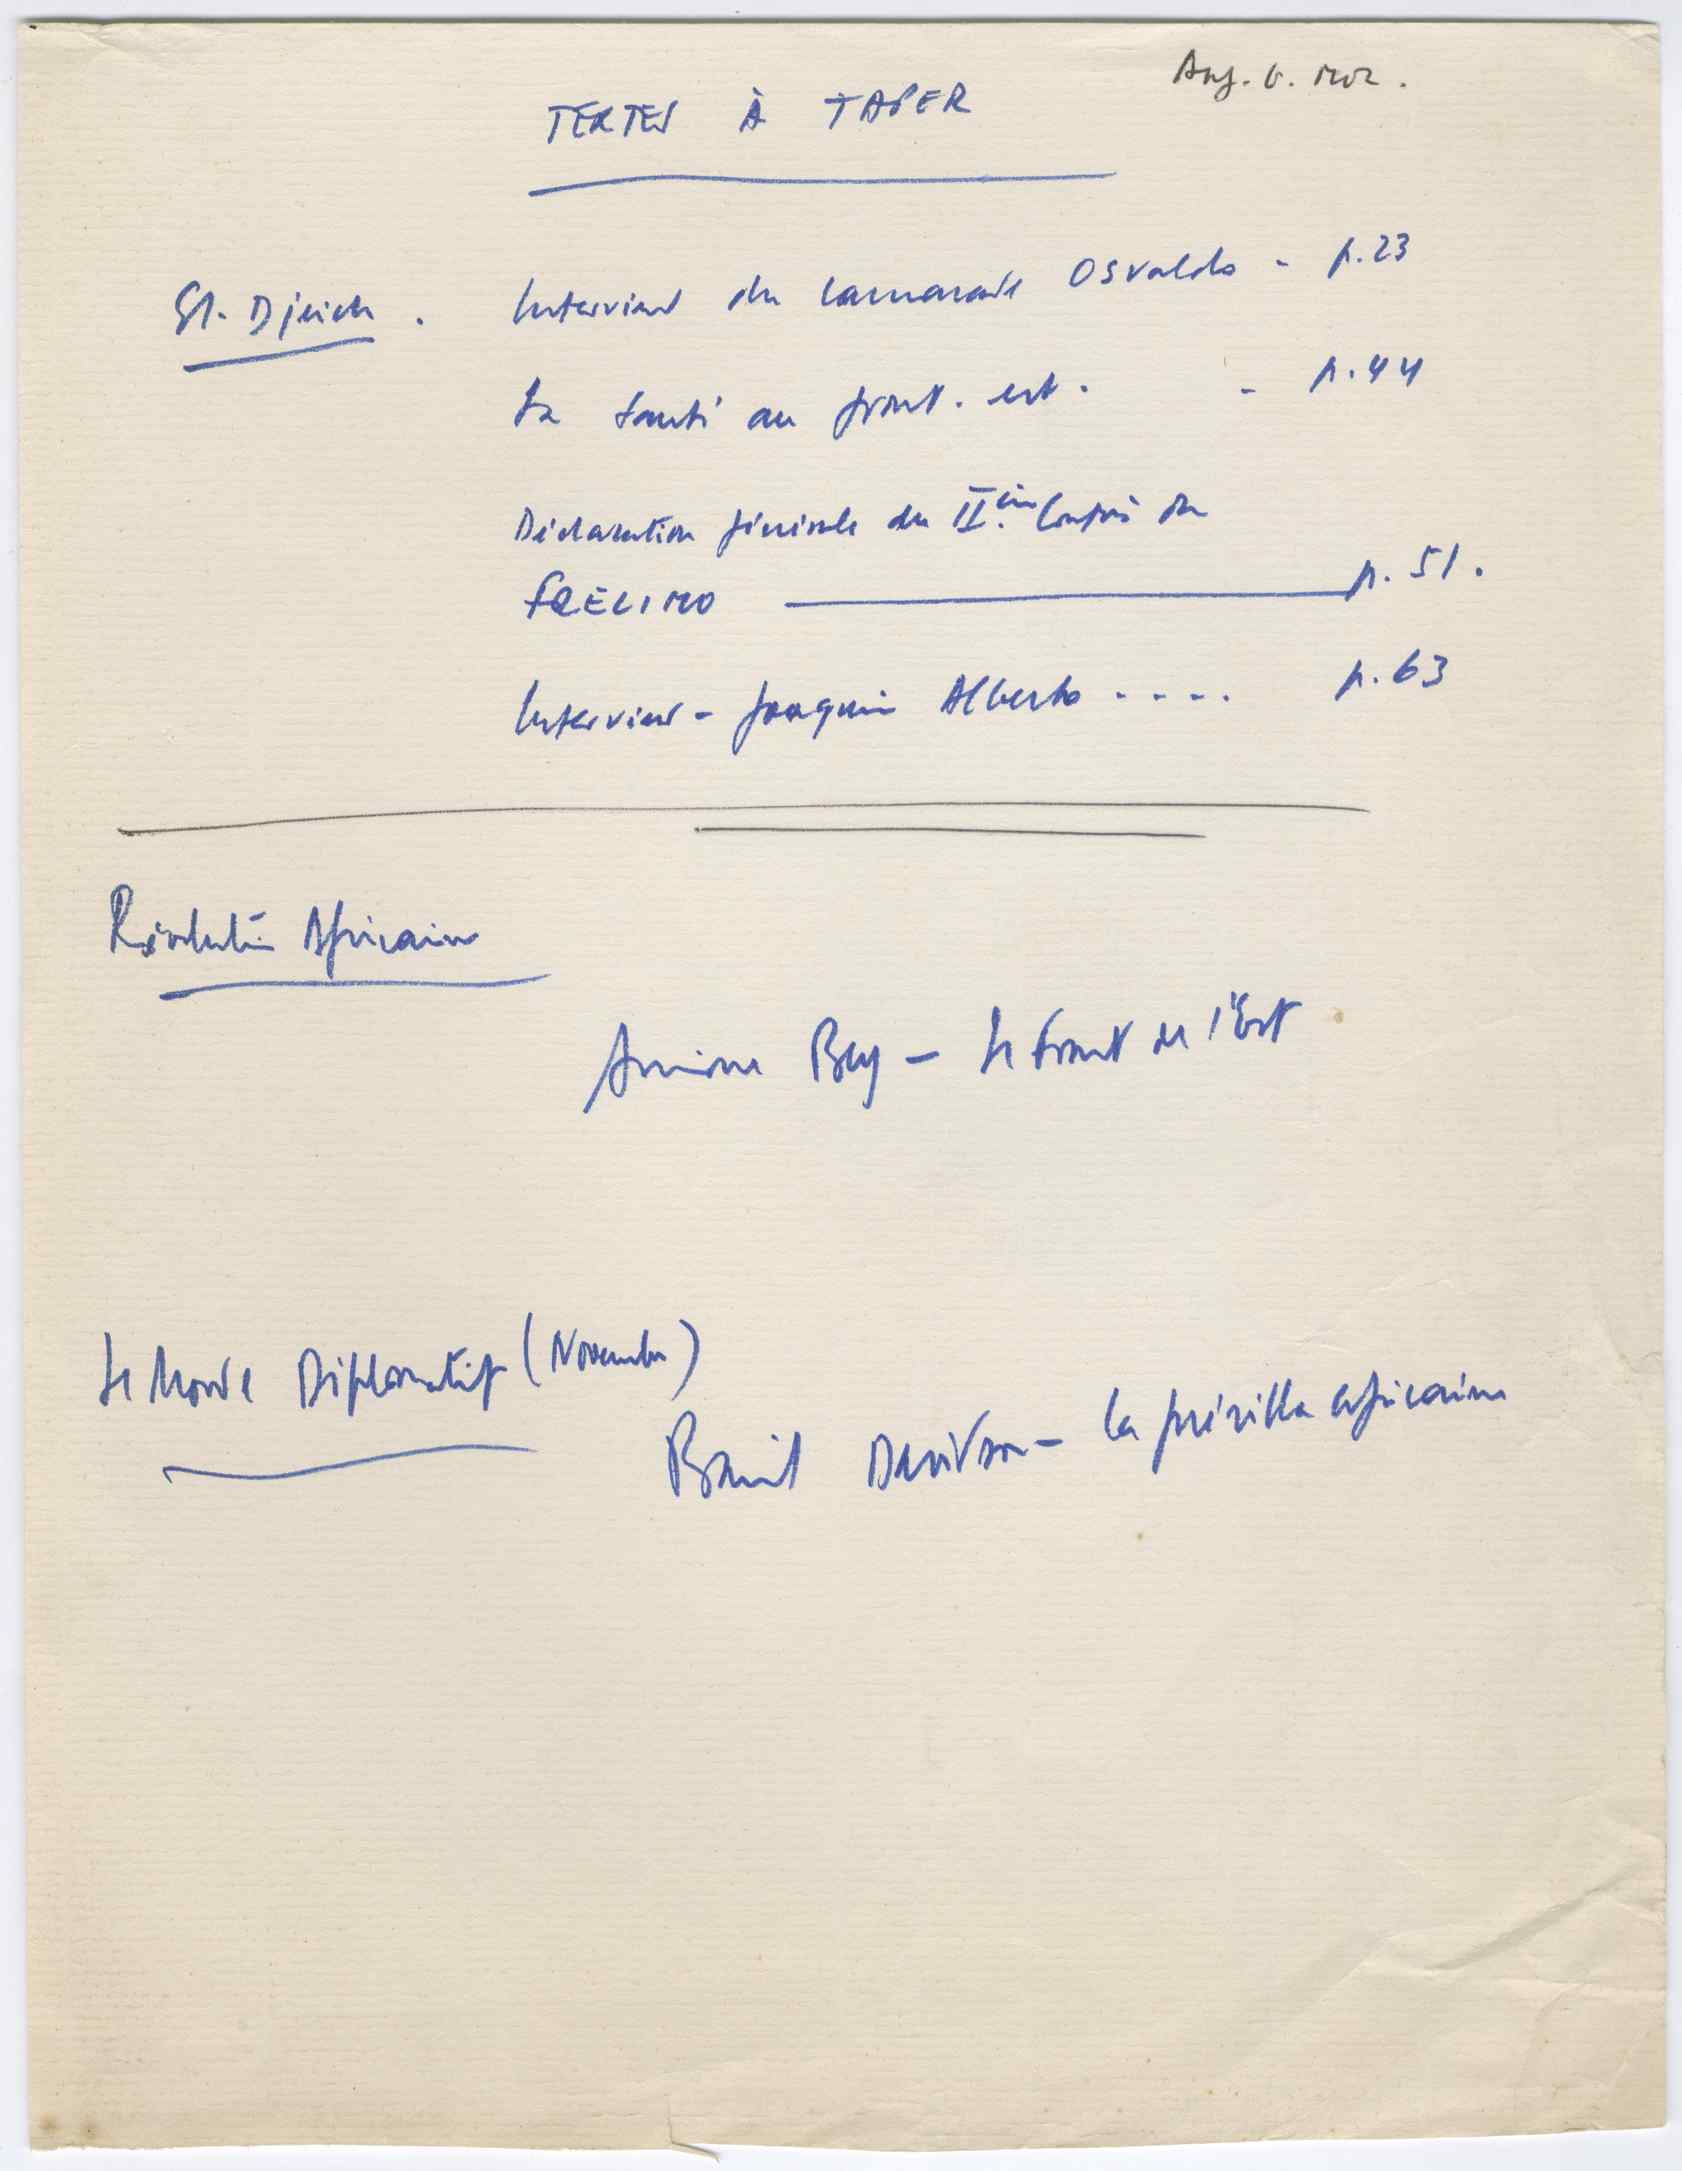 Ang. G. Moz.
TEXTES À TAPER
El-Djeich. Interview du camarade Osvaldo - p.23
La santé au front. est. - p.44
Déclaration générale du IIème Congrès du
FRELIMO p. 51.
Interview - Joaquim Alberto ---- p.63
Révolution Africaine
Amine Bey - Le Front de l'Est
Le Monde Diplomatique (Novembre)
Basil Davidson - La guérilla africaine